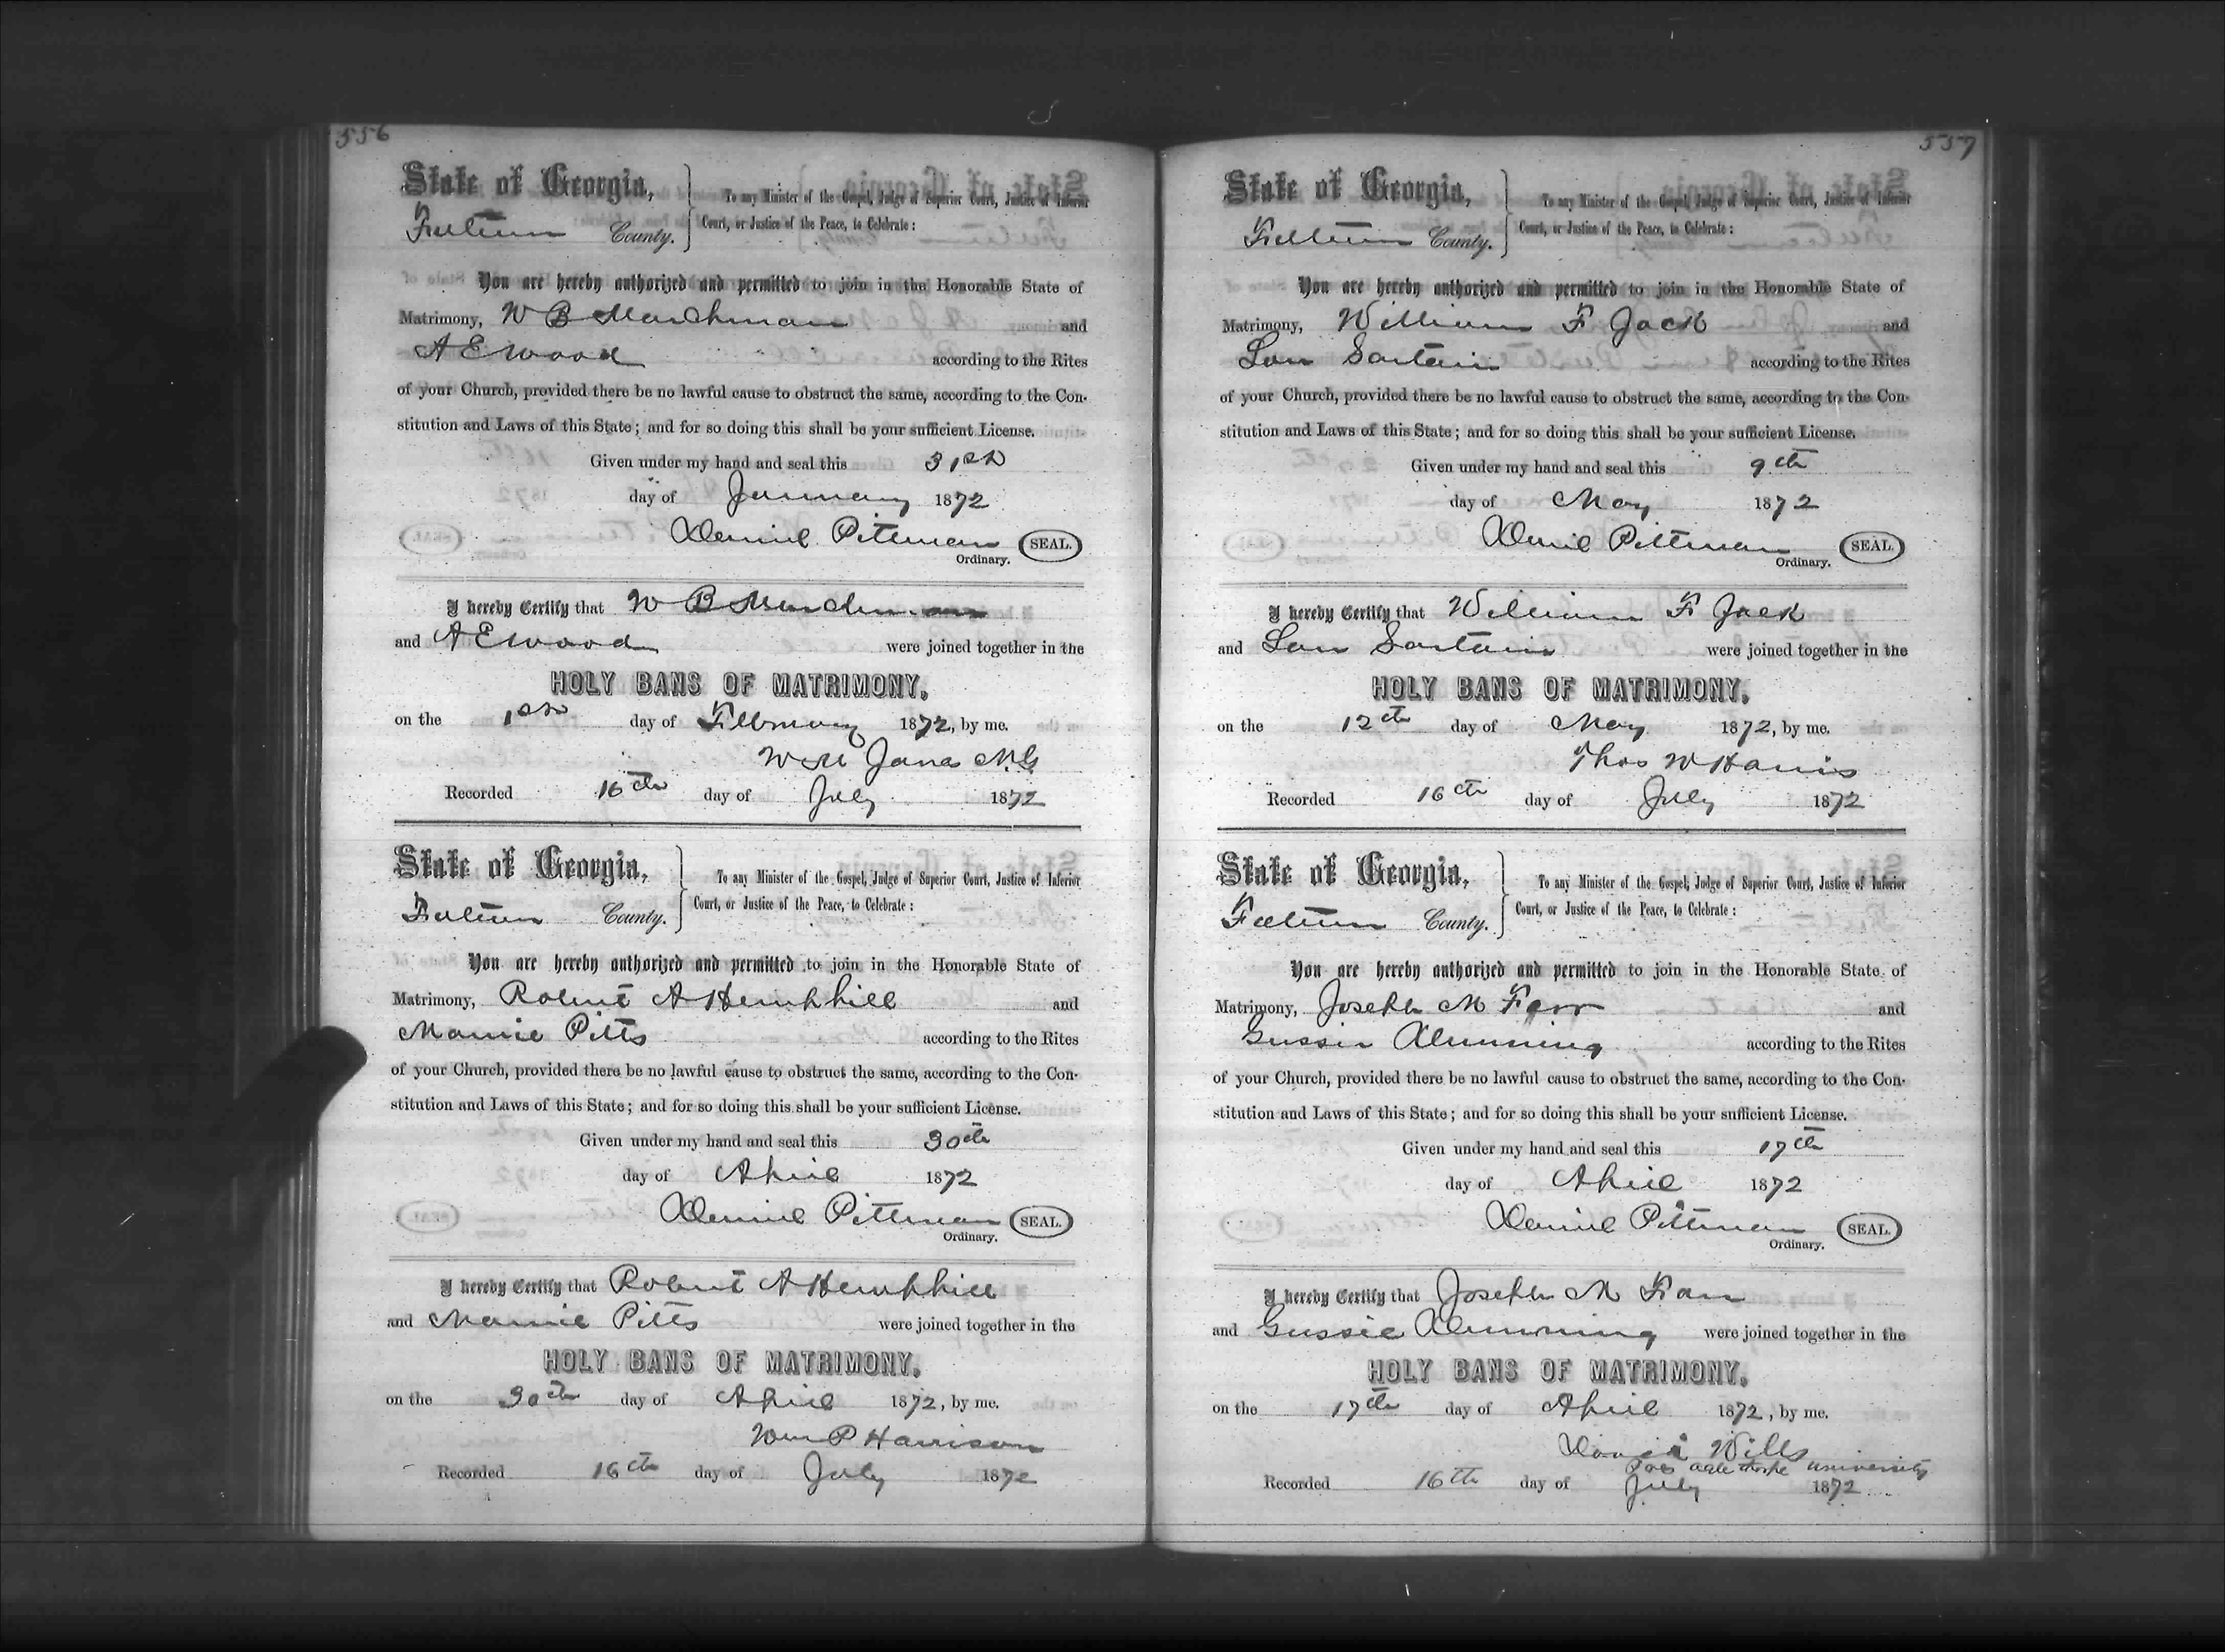 556
State of Georgia,
Fulton County.
To any Minister of the Gospel, Judge of Superior Court, Justice of Inferior
Court, or Justice of the Peace, to Celebrate :
You are hereby authorized and permitted to join in the Honorable State of
Matrimony, W B Marchman and
A E Wood according to the Rites
of your Church, provided there be no lawful cause to obstruct the same, according to the Con-
stitution and Laws of this State; and for so doing this shall be your sufficient License.
Given under my hand and seal this 31st
day of January 1872
Daniel Pittman SEAL.
Ordinary.
I hereby Certify that W B
and A E Wood were joined together in the
HOLY BANS OF MATRIMONY,
on the 1st day of February 1872, by me.
W M Jones MG
Recorded 16th day of July 1872
State of Georgia,
Fulton County.
To any Minister of the Gospel, Judge of Superior Court, Justice of Inferior
Court, or Justice of the Peace, to Celebrate :
You are hereby authorized and permitted to join in the Honorable State of
Matrimony, Robert A Hemphill and
Mamie Pitts according to the Rites
of your Church, provided there be no lawful cause to obstruct the same, according to the Con-
stitution and Laws of this State; and for so doing this shall be your sufficient License.
Given under my hand and seal this 30th
day of April 1872
Daniel Pittman SEAL.
Ordinary.
I hereby Certify that Robert A Hemphill
and Mamie Pitts were joined together in the
HOLY BANS OF MATRIMONY,
on the 30th day of April 1872, by me.
Wm P Harrison
Recorded 16th day of July 1872
557
State of Georgia,
Fulton County.
To any Minister of the Gospel, Judge of Superior Court, Justice of Inferior
Court, or Justice of the Peace, to Celebrate :
You are hereby authorized and permitted to join in the Honorable State of
Matrimony, William F Jack and
Lou Sartain according to the Rites
of your Church, provided there be no lawful cause to obstruct the same, according to the Con-
stitution and Laws of this State; and for so doing this shall be your sufficient License.
Given under my hand and seal this 9th
day of May 1872
Daniel Pittman SEAL.
Ordinary.
I hereby Certify that William F Jack
and Lou Sartain were joined together in the
HOLY BANS OF MATRIMONY,
on the 12th day of May 1872, by me.
Thos W Harris
Recorded 16th day of July 1872
State of Georgia,
Fulton County.
To any Minister of the Gospel, Judge of Superior Court, Justice of Inferior
Court, or Justice of the Peace, to Celebrate :
You are hereby authorized and permitted to join in the Honorable State of
Matrimony, Joseph M Farr and
Gussie according to the Rites
of your Church, provided there be no lawful cause to obstruct the same, according to the Con-
stitution and Laws of this State; and for so doing this shall be your sufficient License.
Given under my hand and seal this 17th
day of April 1872
Daniel Pittman SEAL.
Ordinary.
I hereby Certify that Joseph M Farr
and Gussie were joined together in the
HOLY BANS OF MATRIMONY,
on the 17th day of April 1872, by me.
David Wills
Pres Oglethorpe University
Recorded 16th day of July 1872